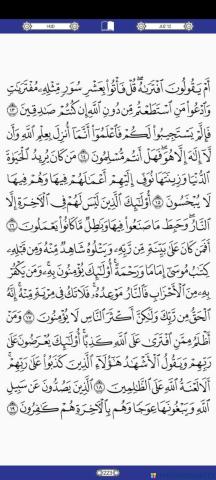 HUD
JUZ 12
أَمْ يَقُولُونَ ٱفْتَرَىٰهُ ۖ قُلْ فَأْتُوا۟ بِعَشْرِ سُوَرٍ مِّثْلِهِۦ مُفْتَرَيَٰتٍ
وَٱدْعُوا۟ مَنِ ٱسْتَطَعْتُم مِّن دُونِ ٱللَّهِ إِن كُنتُمْ صَٰدِقِينَ ١٣
فَإِلَّمْ يَسْتَجِيبُوا۟ لَكُمْ فَٱعْلَمُوٓا۟ أَنَّمَآ أُنزِلَ بِعِلْمِ ٱللَّهِ وَأَن
لَّآ إِلَٰهَ إِلَّا هُوَ ۖ فَهَلْ أَنتُم مُّسْلِمُونَ ١٤ مَن كَانَ يُرِيدُ ٱلْحَيَوٰةَ
ٱلدُّنْيَا وَزِينَتَهَا نُوَفِّ إِلَيْهِمْ أَعْمَٰلَهُمْ فِيهَا وَهُمْ فِيهَا
لَا يُبْخَسُونَ ١٥ أُو۟لَٰٓئِكَ ٱلَّذِينَ لَيْسَ لَهُمْ فِى ٱلْءَاخِرَةِ إِلَّا
ٱلنَّارُ ۖ وَحَبِطَ مَا صَنَعُوا۟ فِيهَا وَبَٰطِلٌ مَّا كَانُوا۟ يَعْمَلُونَ ١٦
أَفَمَن كَانَ عَلَىٰ بَيِّنَةٍ مِّن رَّبِّهِۦ وَيَتْلُوهُ شَاهِدٌ مِّنْهُ وَمِن قَبْلِهِۦ
كِتَٰبُ مُوسَىٰٓ إِمَامًا وَرَحْمَةً ۚ أُو۟لَٰٓئِكَ يُؤْمِنُونَ بِهِۦ ۚ وَمَن يَكْفُرْ
بِهِۦ مِنَ ٱلْأَحْزَابِ فَٱلنَّارُ مَوْعِدُهُۥ ۚ فَلَا تَكُ فِى مِرْيَةٍ مِّنْهُ ۚ إِنَّهُ
ٱلْحَقُّ مِن رَّبِّكَ وَلَٰكِنَّ أَكْثَرَ ٱلنَّاسِ لَا يُؤْمِنُونَ ١٧ وَمَنْ
أَظْلَمُ مِمَّنِ ٱفْتَرَىٰ عَلَى ٱللَّهِ كَذِبًا ۚ أُو۟لَٰٓئِكَ يُعْرَضُونَ عَلَىٰ
رَبِّهِمْ وَيَقُولُ ٱلْأَشْهَٰدُ هَٰٓؤُلَآءِ ٱلَّذِينَ كَذَبُوا۟ عَلَىٰ رَبِّهِمْ ۚ
أَلَا لَعْنَةُ ٱللَّهِ عَلَى ٱلظَّٰلِمِينَ ١٨ ٱلَّذِينَ يَصُدُّونَ عَن سَبِيلِ
ٱللَّهِ وَيَبْغُونَهَا عِوَجًا وَهُم بِٱلْءَاخِرَةِ هُمْ كَٰفِرُونَ ١٩
223